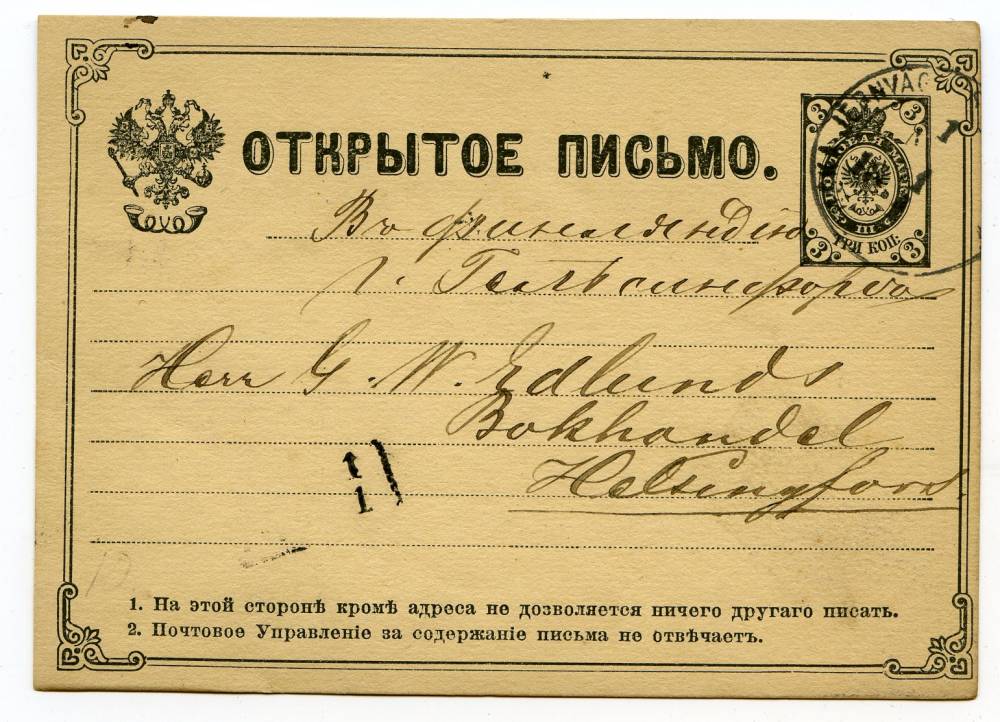 ОТКРЫТОЕ ПИСЬМО.
3 3
ТРИ КОП:
3 3
JERNVÄG
1
Въ Финляндію
г. Гельсингфорсъ
Herr G. W. Edlunds
Bokhandel
Helsingfors.
1
1
1. На этой сторонѣ кромѣ адреса не дозволяется ничего другаго писать.
2. Почтовое Управленіе за содержаніе письма не отвѣчаетъ.